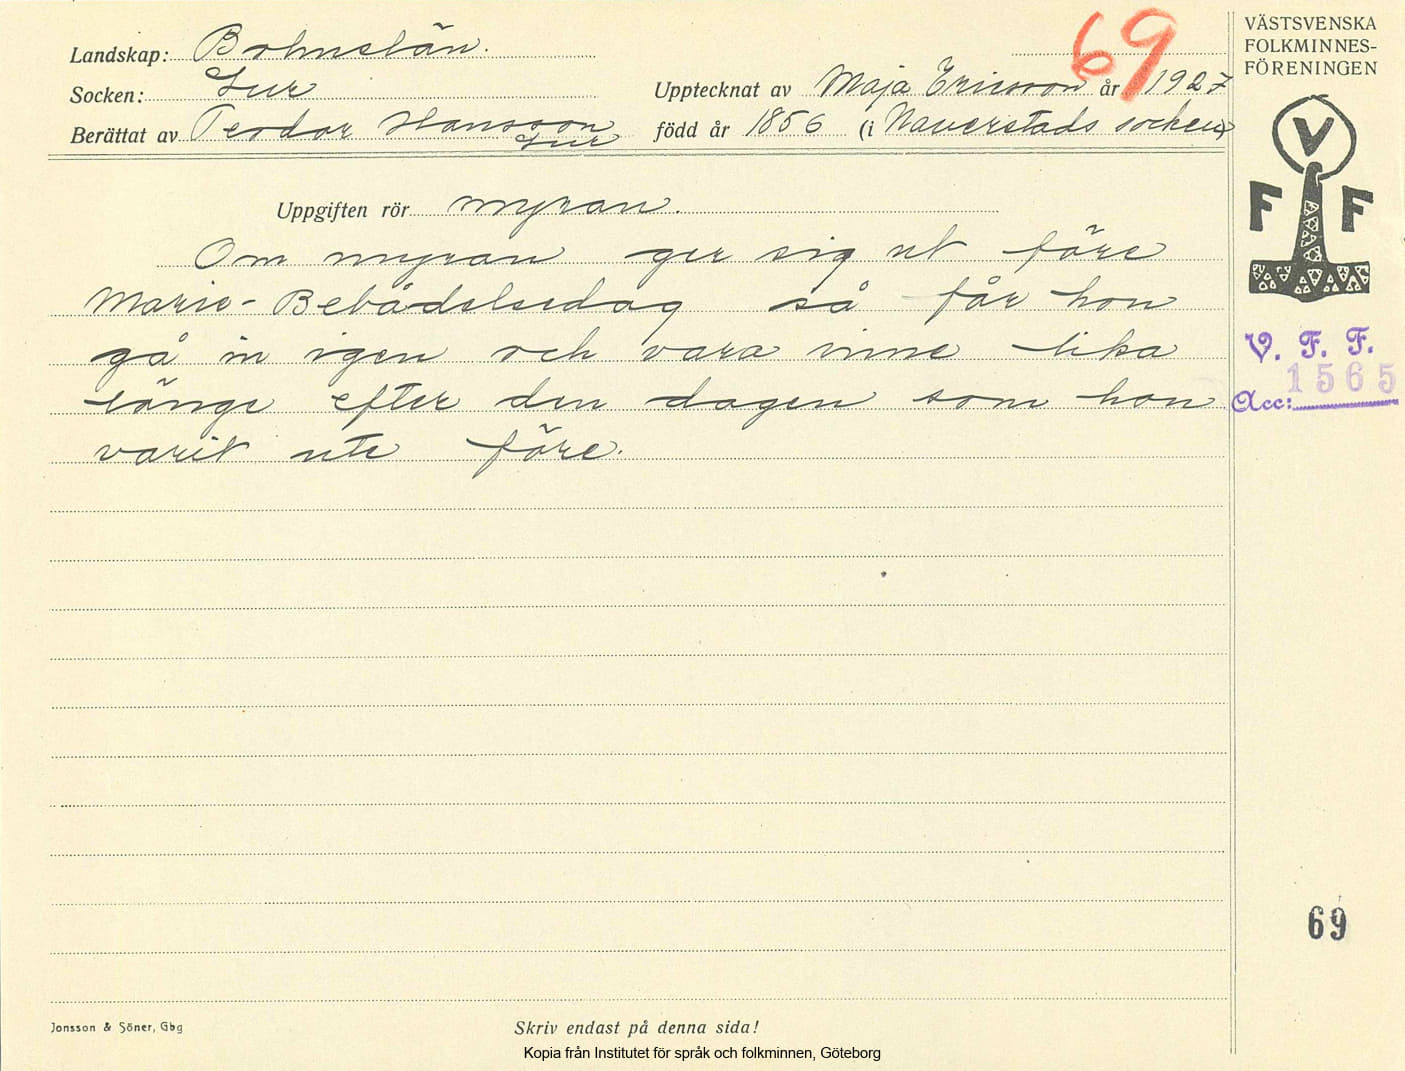 Landskap: Bohuslän.
Socken: Lur
Berättat av Teodor Hansson
Lur
69
Upptecknat av Maja Ericsson år 1927
född år 1856 (i Naverstads socken)
Uppgiften rör myran.
Om myran ger sig ut före
Marie-Bebådelsedag så får hon
gå in igen och vara inne lika
länge efter den dagen som hon
varit ute före.
VÄSTSVENSKA
FOLKMINNES-
FÖRENINGEN
V
F F
V. F. F.
1565
Acc:
69
Jonsson & Söner, Gbg
Skriv endast på denna sida!
Kopia från Institutet för språk och folkminnen, Göteborg